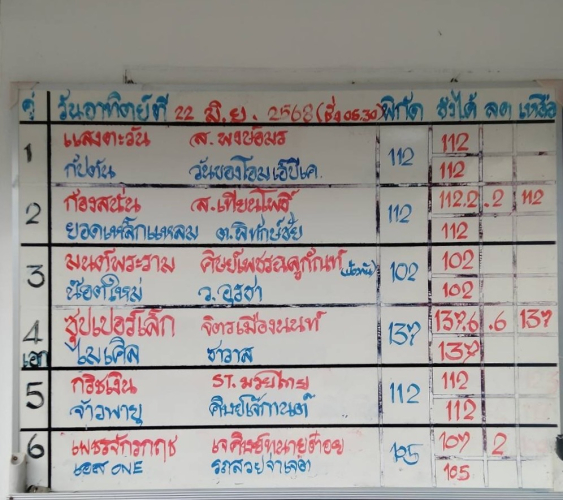 คู่ วันอาทิตย์ที่ 22 มิ.ย. 2568 (ชั่ง 05.30) พิกัด ชั่งได้ ลด เหลือ
1 แสงตะวัน ส.พงษ์อมร 112 112
กัปตัน วันของโอมเอ็ปีเค. 112
2 ก้องสนั่น ส.เทียนโพธิ์ 112 112.2 .2 112
ยอดเหล็กแหลม ต.สิทักษ์ชัย 112
3 มนต์พระราม ศิษย์เพชร 102 102
น๊อตใหม่ ว.อุรชา 102
4 ซุปเปอร์เล็ก จิตรเมืองนนท์ 137 137.6 .6 137
เอก ไมเคิล ชาวาส 137
5 กริชเงิน ST.มวยไทย 112 112
จ้าวพายุ ศิษย์เจ๊กานต์ 112
6 เพชรจักรกฤช เจศิษย์ทนายต้อย 105 107 2
เอส ONE รถสวย 105